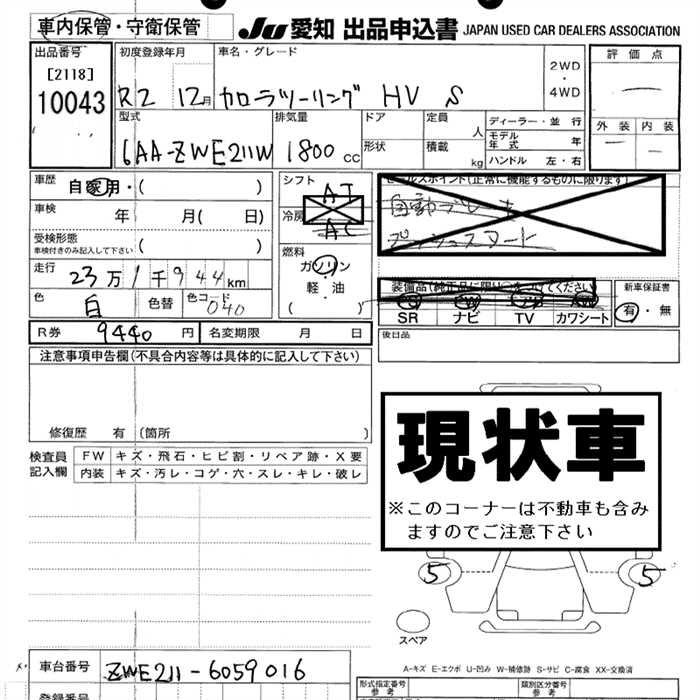 車内保管・守衛保管
JU 愛知 出品申込書 JAPAN USED CAR DEALERS ASSOCIATION
出品番号
[2118]
10043
初度登録年月
R2 12月
車名・グレード
カローラツーリング HV S
2WD
・
4WD
評価点
外装 内装
型式
6AA-ZWE211W
排気量
1800 cc
ドア
形状
定員 人
積載 kg
ディーラー・並行
モデル年式 年
ハンドル 左・右
車歴 自家用・( )
車検 年 月( 日)
受検形態
車検付きのみ記入して下さい ( )
走行 23万1千944km
色 白 色替 色コード 040
R券 9440円 名変期限 月 日
シフト AT
冷房 AC
燃料
ガソリン
軽・油
( )
セールスポイント(正常に機能するものに限ります)
自動ブレーキ
プッシュスタート
装備品(純正品に限り○をつけてください)
SR ナビ TV カワシート
新車保証書
有・無
後日品
注意事項申告欄(不具合内容等は具体的に記入して下さい)
修復歴 有 (箇所 )
検査員記入欄
FW キズ・飛石・ヒビ割・リペア跡・X要
内装 キズ・汚レ・コゲ・穴・スレ・キレ・破レ
現状車
※このコーナーは不動車も含み
ますのでご注意下さい
5 5
スペア
A-キズ E-エクボ U-凹み W-補修跡 S-サビ C-腐食 XX-交換済
車台番号 ZWE211-6059016
登録番号
形式指定番号
参考
類別区分番号
参考